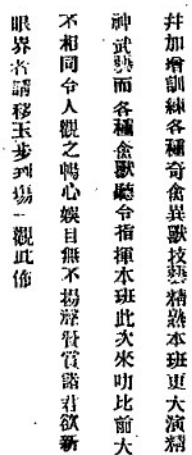 并加增訓練各種奇禽異獸技藝精熟本班更大演精
神武藝而各種禽獸聽令指揮本班此次來叻比前大
不相同令人觀之暢心娛目無不揚聲贊賞諸君欲新
眼界者請移玉步到場一觀此佈